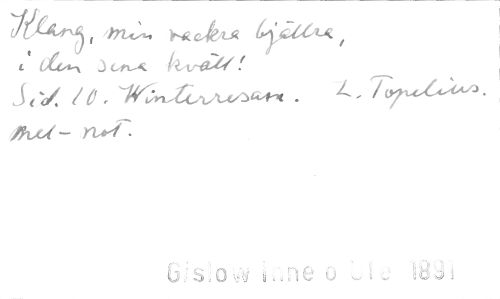 Klang, min vackra bjällra,
i den sena kväll!
Sid. 10. Winterresan. Z. Topelius.
mel-not.
Gislow Inne o Ute 1891